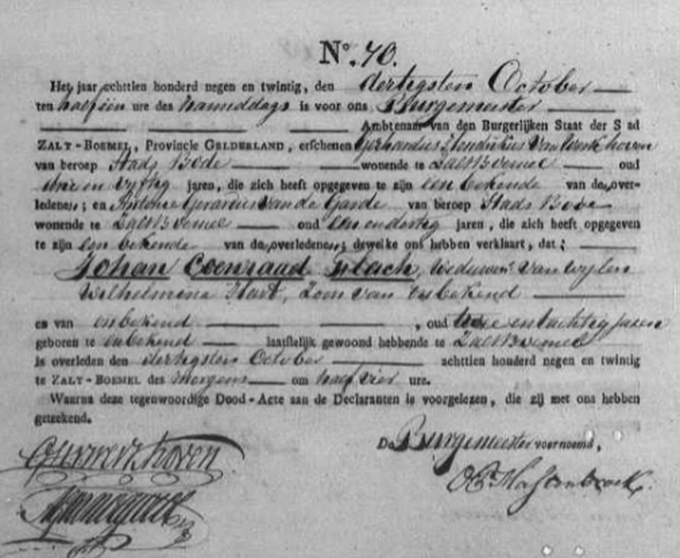 No. 70.
Het jaar achttien honderd negen en twintig, den dertigsten October
ten half een ure des namiddags is voor ons Burgemeister
Ambtenaar van den Burgerlijken Staat der S ad
ZALT-BOEMEL, Provincie GELDERLAND, erschenen Gerhardus Hendrikus van Werkhoven
van beroep Stads Bode wonende te Zaltboemel oud
drie en vyftig jaren, die zich heeft opgegeven te zijn een bekende van de over-
ledene; en Antonie Gerardus van de Garde van beroep Stads Bode
wonende te Zaltboemel oud een en dertig jaren, die zich heeft opgegeven
te zijn een bekende van de overledene; dewelke ons hebben verklaart, dat:
Johan Coenraad, Weduwen van wylen
Wilhelmina Hart, Zoon van onbekend
en van onbekend, oud en tachtig jaren
geboren te onbekend laatstelijk gewoond hebbende te Zaltboemel
is overleden den dertigsten October achttien honderd negen en twintig
te ZALT-BOEMEL des morgens om half vier ure.
Waarna deze tegenwoordige Dood-Acte aan de Declaranten is voorgelezen, die zij met ons hebben
geteekend.
De Burgemeister voornoemd,